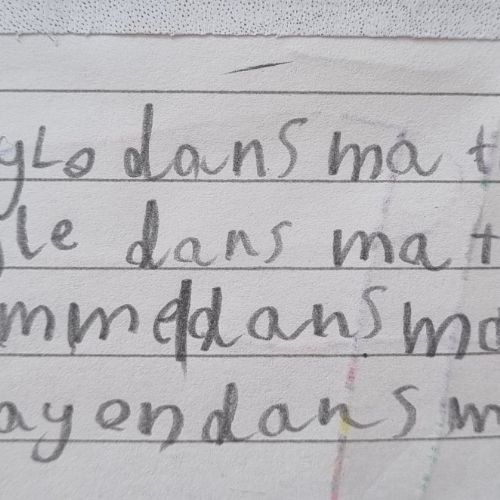 yLo dans ma t
le dans ma t
mmedans ma
ayondans m